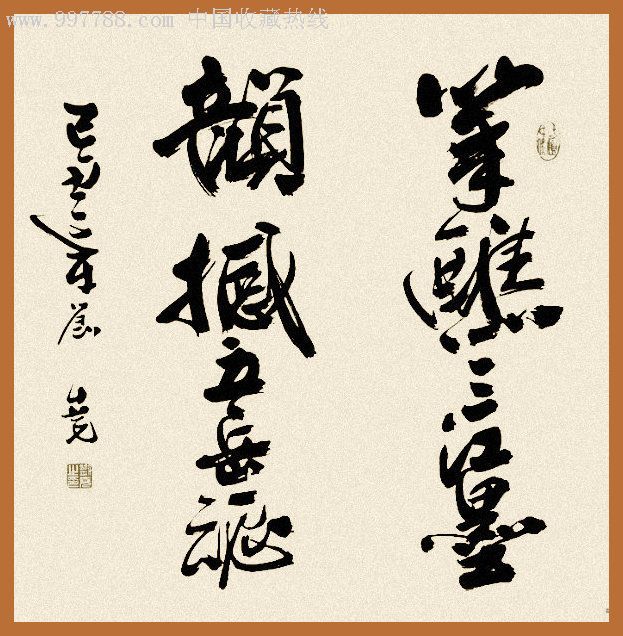 www.997788.com 中国收藏热线
筆醮三江墨
韻撼五岳魂
己丑年